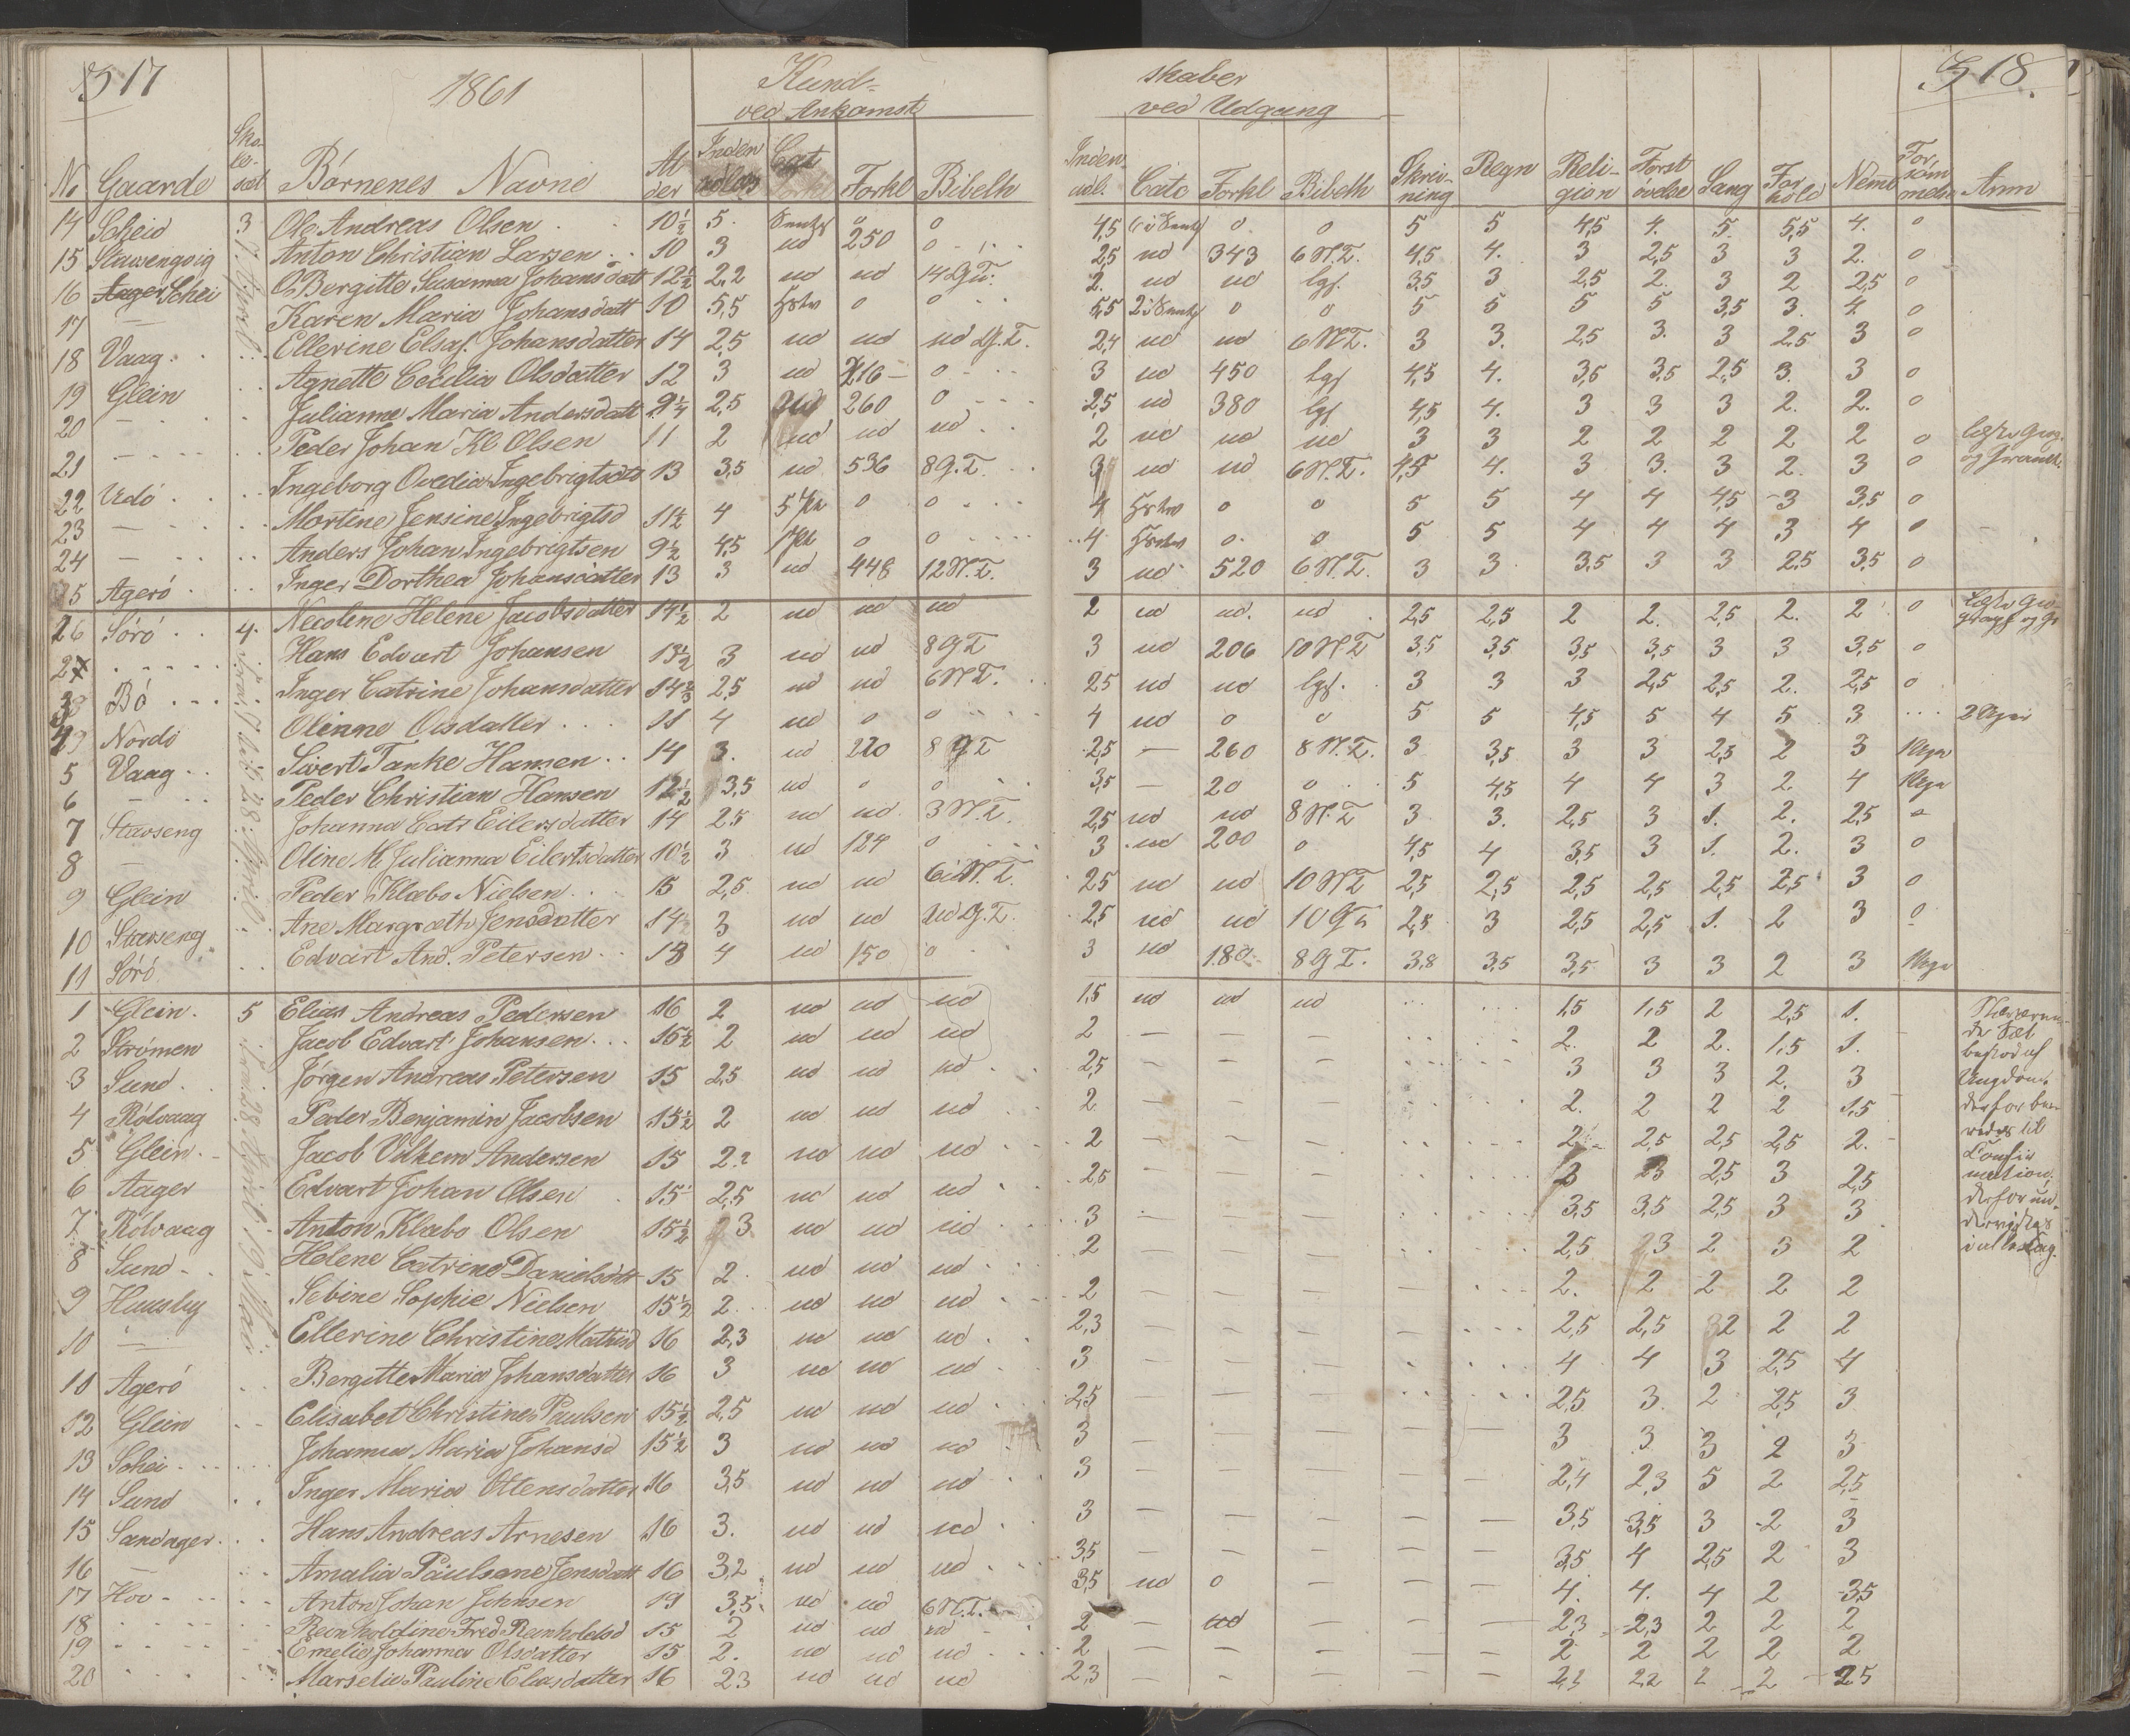 17 1861 Kund- skaber 18.
ved Ankomst ved Udgang
No Gaarde Sko-le-sæt Børnenes Navne Al der Inden adlæs Cat Forkl Bibelh Inden adl. Catc Forkl Bibelh Skriv-ning Regn Reli-gion Forst øvelse Sang For hold Nemme For søm melse Anm
14 Scheid 3 Ole Andreas Olsen 10½ 5. 0 0 4,5 0 0 5 5 4,5 4. 5. 5,5 4. 0
15 Stavsengvig Anton Christian Larsen 10 3 ud 250 0 2,5 ud 343 6 N.T. 4,5 4. 3 2,5 3 3 2. 0
16 Schei Bergitte Susanna Johansdatt 12½ 2,2 ud ud 14 G.T. 2. ud ud lgs. 3,5 3 2,5 2. 3 2 2,5 0
17 — Karen Maria Johansdatt 10 5,5 0 0 5,5 0 0 5 5 5 5 3,5 3. 4 0
18 Vaag Ellerine Elsas. Johansdatter 14 2,5 ud ud ud G.T. 2,4 ud ud 6 N.T. 3 3. 2,5 3. 3 2,5 3 0
19 Glein Agnette Cecilia Olsdatter 12 3 ud 216 0 3 ud 450 lgs 4,5 4. 3,5 3,5 2,5 3. 3 0
20 — Julianne Maria Andersdatt 9¼ 2,5 ud 260 0 2,5 ud 380 lgs 4,5 4. 3 3 3 2. 2. 0
21 — Peder Johan Kl. Olsen 11 2 ud ud ud 2 ud ud ud 3 3 2 2 2 2 2 0
22 Udø Ingeborg Ovedia Ingebrigtsdt 13 3,5 ud 536 8 G.T. 3 ud ud 6 N.T. 4,5 4. 3 3. 3 2. 3 0
23 — Martine Jensine Ingebrigtsd 11½ 4 0 0 4 0 0 5 5 4 4 4,5 3 3,5 0
24 — Anders Johan Ingebrigtsen 9½ 4,5 0 0 4 0 0 5 5 4 4 4 3 4 0
25 Agerø Inger Dorthea Johansdatter 13 3 ud 448 12 N.T. 3 ud 520 6 N.T. 3 3 3,5 3 3 2,5 3,5 0
26 Sørø 4. Necoline Helene Jacobsdatter 14½ 2 ud ud ud 2 ud ud. ud 2,5 2,5 2 2. 2,5 2. 2 0
2 Hans Edvart Johansen 13½ 3 ud ud 8 G T 3 ud 206 10 N T 3,5 3,5 3,5 3,5 3 3 3,5 0
3 Bø Inger Catrine Johansdatter 14½ 2,5 ud ud 6 N T. 2,5 ud ud lgs. 3 3 3 2,5 2,5 2. 2,5 0
4 Nordø Olinne Olsdatter 11 4 ud 0 0 4 ud 0 0 5 5 4,5 5 4 5 3
5 Vaag Sivert Tanke Hansen 14 3. ud 220 8 G T 2,5 — 260 8 N.T. 3 3,5 3 3 2,5 2 3
6 — Peder Christian Hansen 12½ 3,5 ud 0 0 3,5 — 20 0 5 4,5 4 4 3 2 4
7 Stavseng Johanna Catr Eilersdatter 14 2,5 ud ud 3 N.T. 2,5 ud ud 8 N.T 3 3. 2,5 3 1. 2. 2,5 0
8 — Oline M Julianna Eilertsdatter 10½ 3 ud 124 0 3 ud 200 0 4,5 4 3,5 3 1. 2. 3 0
9 Glein Peder Klæbo Nielsen 15 2,5 ud ud 6 N.T. 2,5 ud ud 10 N T 2,5 2,5 2,5 2,5 2,5 2,5 3 0
10 Stavseng Ane Margreth Jensdatter 14 3 ud ud ud G.T. 2,5 ud ud 10 G T 2,5 3 2,5 2,5 1. 2 3 0
11 Sørø Edvart And. Petersen 13 4 ud 150 0 3 ud 180 8 G T. 3,8 3,5 3,5 3 3 2 3
1 Glein. 5 Elias Andreas Pedersen 16 2 ud ud ud 1,5 ud ud ud 1,5 1,5 2 2,5 1.
2 Strømen Jacob Edvart Johansen 15½ 2 ud ud ud 2 — — — 2. 2 2. 1,5 1.
3 Sund Jørgen Andreas Petersen 15 2,5 ud ud ud 2,5 — — — 3 3 3 2. 3
4 Rølvaag Peder Benjamin Jacobsen 15½ 2 ud ud ud 2 — — — 2. 2 2 2 1,5
5 Glein. Jacob Vilhem Andersen 15 2.2 ud ud ud 2 — — — 2 2,5 2,5 2,5 2.
6 Aager Edvart Johan Olsen 15 2,5 ud ud ud 2,5 — — — 3 3 2,5 3 2,5
7 Rølvaag Anton Klæbo Olsen 15½ 3 ud ud ud 3 — — — 3,5 3,5 2,5 3 3
8 Sund Helene Catrine Danielsdtt 15 2 ud ud ud 2 — — — 2,5 2,3 2 3 2
9 Huusby Sebine Sophie Nielsen 15½ 2 ud ud ud 2 — — — 2. 2 2 2 2
10 — Ellerine Christine Mathisd 16 2,3 ud ud ud 2,3 — — — 2,5 2,5 2 2 2
11 Agerø Bergitte Maria Johansdatter 16 3 ud ud ud 3 — — — 4 4 3 2,5 4
12 Glein Elisabet Christine Paulsen 15½ 2,5 ud ud ud 2,5 — — — 2,5 3. 2 2,5 3
13 Schei Johanna Maria Johansd 15½ 3 ud ud ud 3 — — — 3 3 3 2 3
14 Sund Inger Maria Ottensdatter 16 3,5 ud ud ud 3 — — — 2,4 2,3 5 2 2,5
15 Sandager Hans Andreas Arnesen 16 3. ud ud ud 3 — — — 3,5 3,5 3 2 3
16 — Amalia Paulsane Jensdatt 16 3,2 ud ud ud 3,5 — — — 3,5 4 2,5 2 3
17 Hov Anton Johan Johnsen 19 3,5 ud ud 6 N.T. 3,5 ud 0 — 4. 4. 4 2 3,5
18 Reinholdine Fred Reinholdsd 15 2 ud ud ud 2 — ud — 2,3 2,3 2 2 2
19 Emelie Johanna Olsdatter 15 2. ud ud ud 2 — — — 2 2 2 2 2
20 Marselie Pauline Eliasdatter 16 2,3 ud ud ud 2,3 — — — 2,3 2,2 2 2 2,5